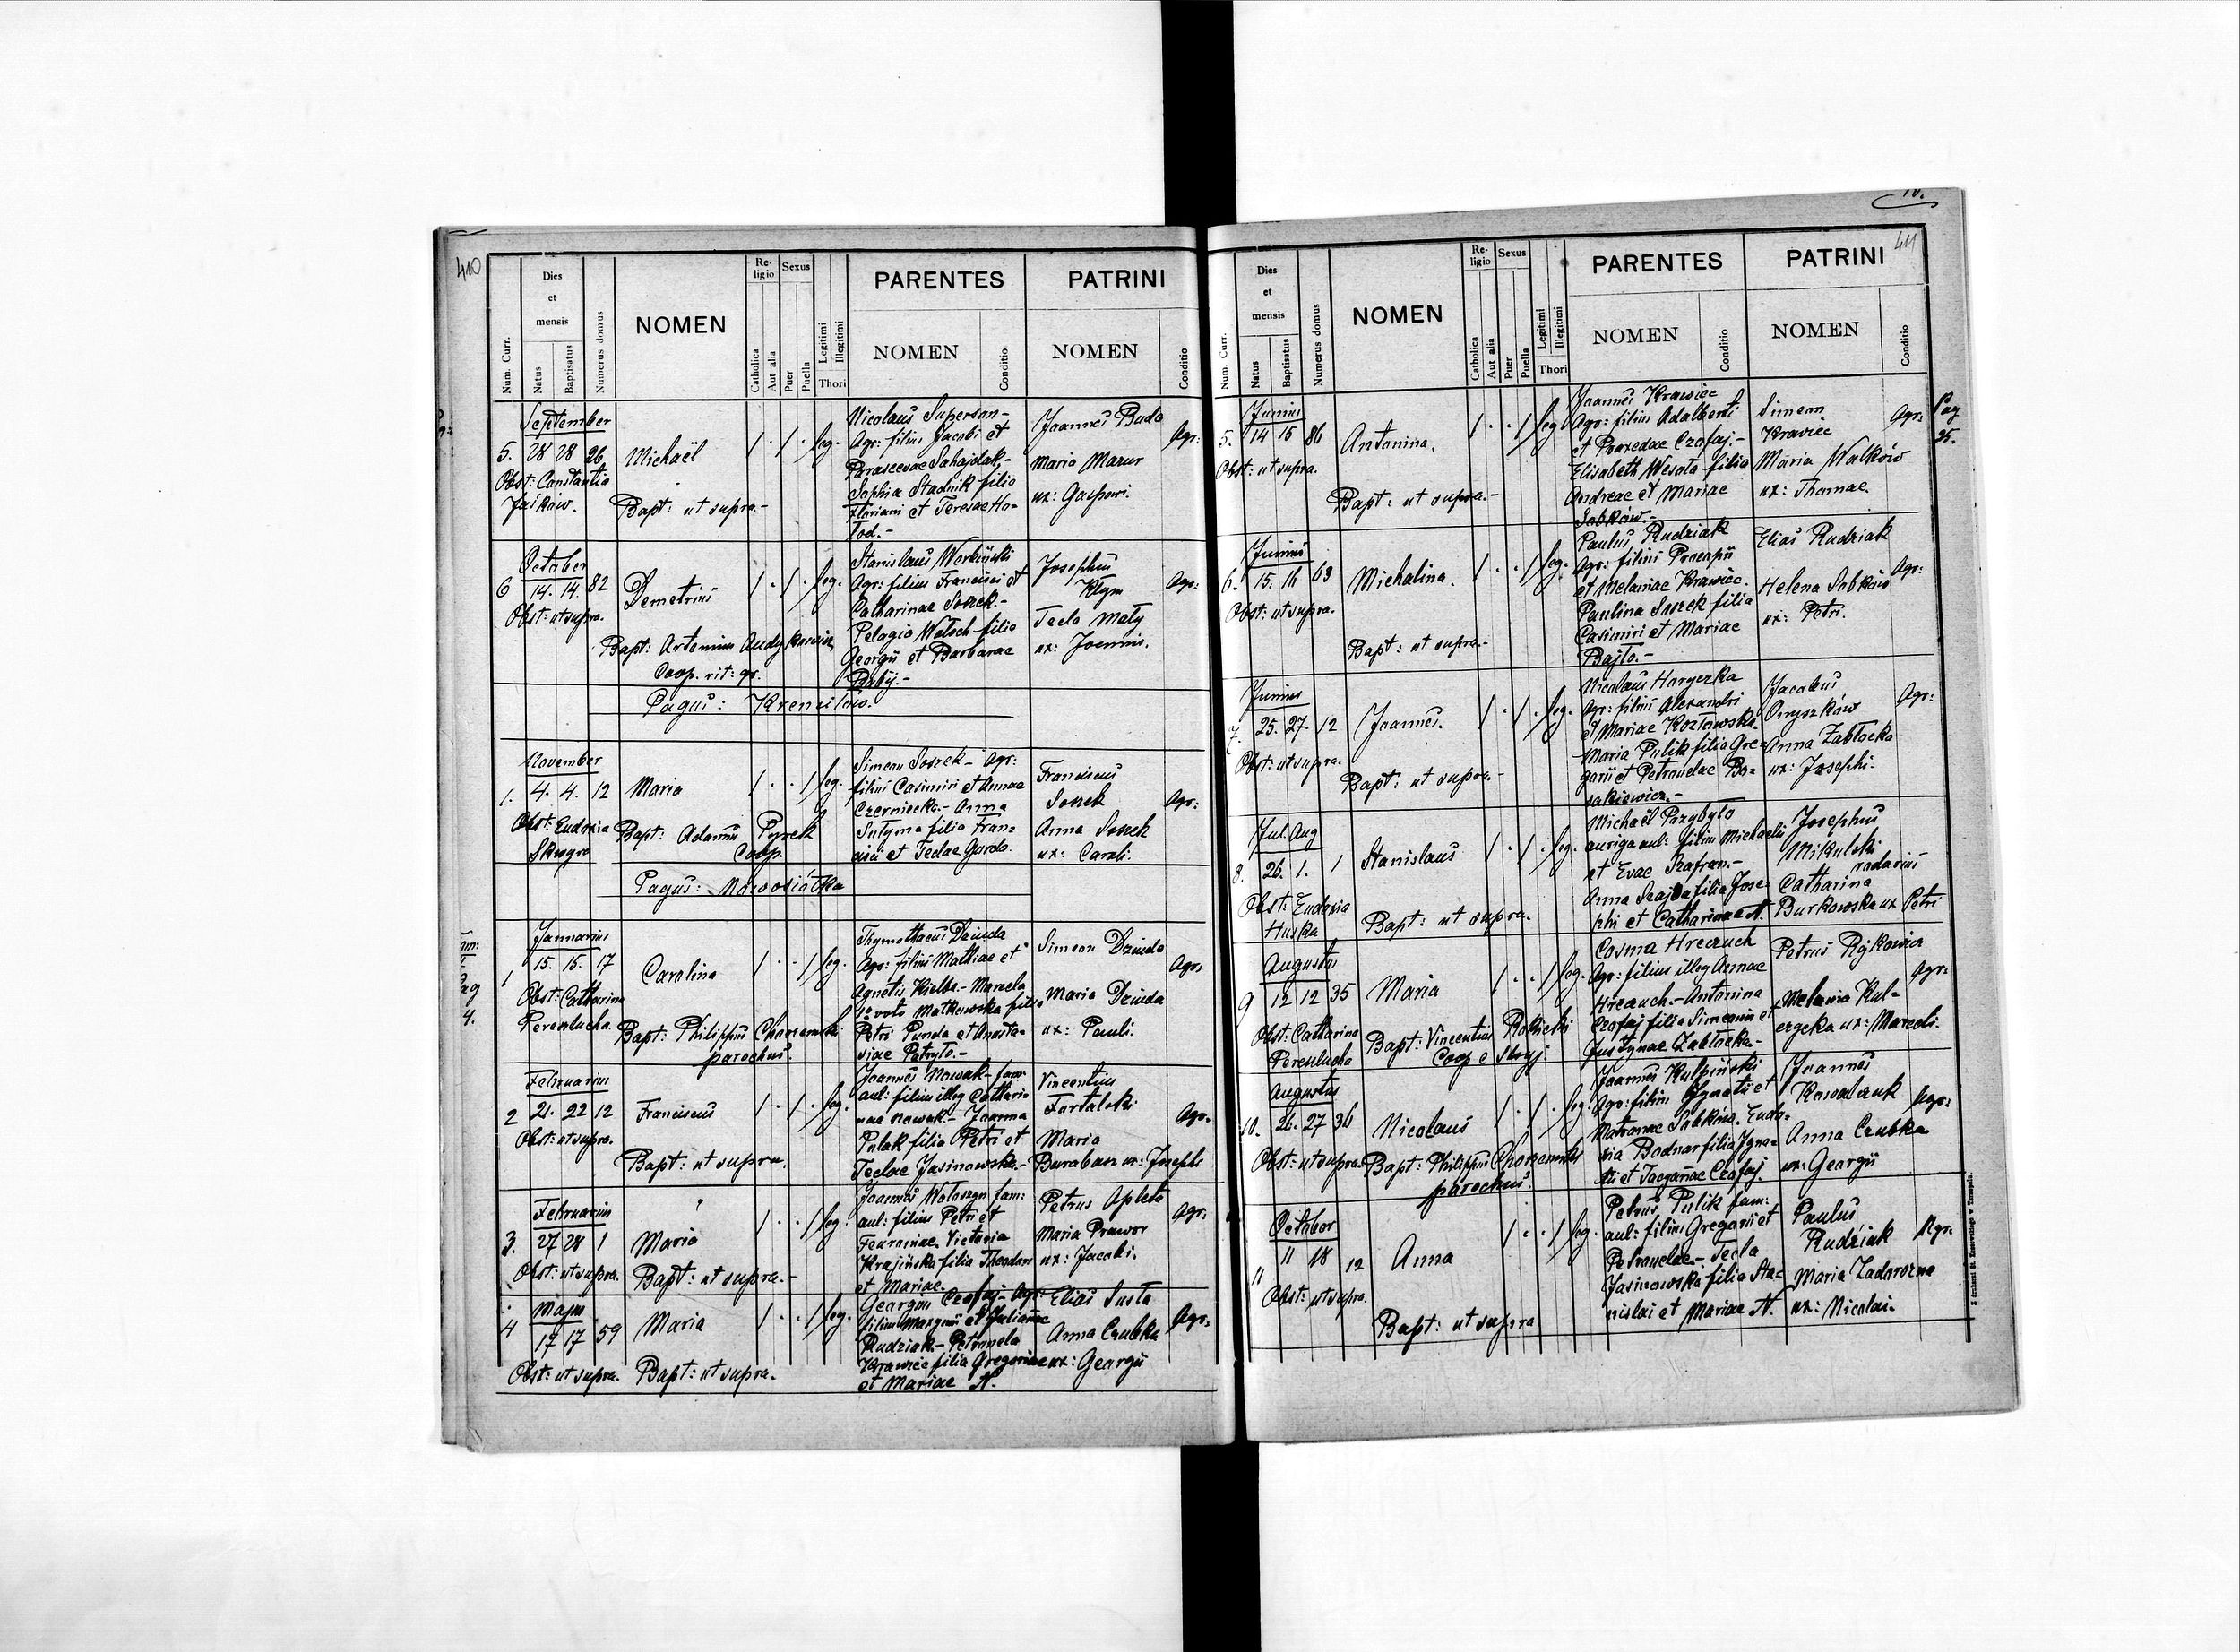 410
Num. Curr.
Dies et mensis
Natus
Baptisatus
Numerus domus
NOMEN
Religio
Catholica
Aut alia
Sexus
Puer
Puella
Legitimi
Illegitimi
Thori
PARENTES
NOMEN
Conditio
PATRINI
NOMEN
Conditio
September
5. 28 28 26 Michaël leg.
Obst: Constantia
Jaśków.
Bapt: ut supra.-
Nicolaus Superson-
Agr: filius Jacobi et
Parascevae Sahajdak,-
Sophia Stadnik filia
Floriani et Teresae Ho-
tod.-
Joannes Buda
Maria Mazur
ux: Gaspari.
Agr:
October
6 14. 14. 82 Demetrius leg.
Obst: ut supra.
Bapt: Artemius
Coop. rit: gr.
Stanislaus Werbiński
Agr: filius Francisci et
Catharinae Soszek.-
Pelagia Wołoch filia
Georgii et Barbarae
Baby.-
Josephus
Kłym
Tecla Mały
ux: Joannis.
Agr:
Pagus: Kreniłów.
November
1. 4. 4. 12 Maria leg.
Obst: Eudoxia
Skwyra
Bapt: Adamus Pyrek
Coop.
Simeon Soszek - Agr:
filius Casimiri et Annae
Czerniecka.- Anna
Sutyma filia Fran=
cisci et Teclae Garda.
Franciscus
Soszek
Anna Soszek
ux: Caroli.
Agr:
Pagus: Nowosiółka
Januarius
1 15. 15. 17 Carolina leg.
Obst: Catharina
Peresłucha.
Bapt: Philippus Chorzemski
parochus.
Thymotheus Dziuda
Agr: filius Mathiae et
Agnetis Kielba.- Marcela
1º voto Matkowska filia
Petri Punda et Anasta-
siae Petryło.-
Simeon Dziuda
Maria Dziuda
ux: Pauli.
Agr:
Februarius
2 21. 22 12 Franciscus leg.
Obst: ut supra.
Bapt: ut supra.
Joannes Nowak - fam:
aul: filius illeg Cathari-
nae Nowak.- Joanna
Pulak filia Petri et
Teclae Jasinowska.-
Vincentius
Furtalski
Maria
Baraban ux: Josephi
Agr.
Februarius
3. 27 28 1 Maria leg.
Obst: ut supra.
Bapt: ut supra.-
Joannes Wołoszyn fam:
aul: filius Petri et
Feuroniae. Victoria
Krajińska filia Theodori
et Mariae.
Petrus Apleta
Maria Prawor
ux: Jacobi.
Agr:
Majus
4 17 17 59 Maria leg.
Obst: ut supra. Bapt: ut supra.
Georgius Czofaj - Agr:
filius et Julianae
Rudziak.- Petronela
Krawiec filia Gregorii
et Mariae N.
Elias Susła
Anna Czubka
ux: Georgii
Agr.
411
Num. Curr.
Dies et mensis
Natus
Baptisatus
Numerus domus
NOMEN
Religio
Catholica
Aut alia
Sexus
Puer
Puella
Legitimi
Illegitimi
Thori
PARENTES
NOMEN
Conditio
PATRINI
NOMEN
Conditio
Junius
5. 14 15 86 Antonina. leg
Obst: ut supra.
Bapt: ut supra.-
Joannes Krawiec
Agr: filius Adalberti
et Praxedae Czofaj.-
Elisabeth Wesoła filia
Andreae et Mariae
Sobków.-
Simeon
Krawiec
Maria Walków
ux: Thomae.
Agr:
Pag
25.
Junius
6. 15. 16 63 Michalina. leg.
Obst: ut supra.
Bapt: ut supra.-
Paulus Rudziak
Agr: filius Procopii
et Melaniae Krawiec.
Paulina Soszek filia
Casimiri et Mariae
Bajło.-
Elias Rudziak
Helena Sobków
ux: Petri.
Agr:
Junius
7. 25. 27 12 Joannes. leg.
Obst: ut supra.
Bapt: ut supra-
Nicolaus Haryczka
Agr: filius Alexandri
et Mariae Kozłowska.
Maria Pulik filia Gre-
gorii et Petronelae Bo=
sakiewicz.-
Jacobus
Onyszków
Anna Zabłocka
ux: Josephi.
Agr:
Jul. Aug
8. 26. 1. 1 Stanislaus leg.
Obst: Eudoxia
Huska
Bapt: ut supra.
Michaël Przybyło
auriga aul: filius Michaelis
et Evae Szafran.-
Anna Szajda filia Jose-
phi et Catharinae N.
Josephus
Mikulski
Catharina
Burkowska ux Petri
Augustus
9 12 12 35 Maria leg.
Obst: Catharina
Peresłucha
Bapt: Vincentius Rokicki
Coop e Stryj.
Cosma Hreczuch
Agr: filius illeg Annae
Hreczuch.- Antonina
Czofaj filia Simeonis et
Justynae Zabłocka-
Petrus Rijkowicz
Melania Kul-
ux: Marcoli.
Agr.
Augustus
10. 26. 27 36 Nicolaus leg.
Obst: ut supra. Bapt: Philippus Chorzemski
parochus.
Joannes Kulpiński
Agr: filius Ignatii et
Matronae Sobków. Eudo-
xia Bodnar filia Igna-
tii et Tacyannae Czofaj.
Joannes
Kowalczuk
Anna Czubka
ux: Georgii
Agr:
October
11 11 18 12 Anna leg.
Obst: ut supra.
Bapt: ut supra
Petrus Pulik fam:
aul: filius Gregorii et
Petronelae.- Tecla
Jasinowska filia Sta-
nislai et Mariae N.
Paulus
Rudziak
Maria Zadorozna
ux: Nicolai.
Agr.